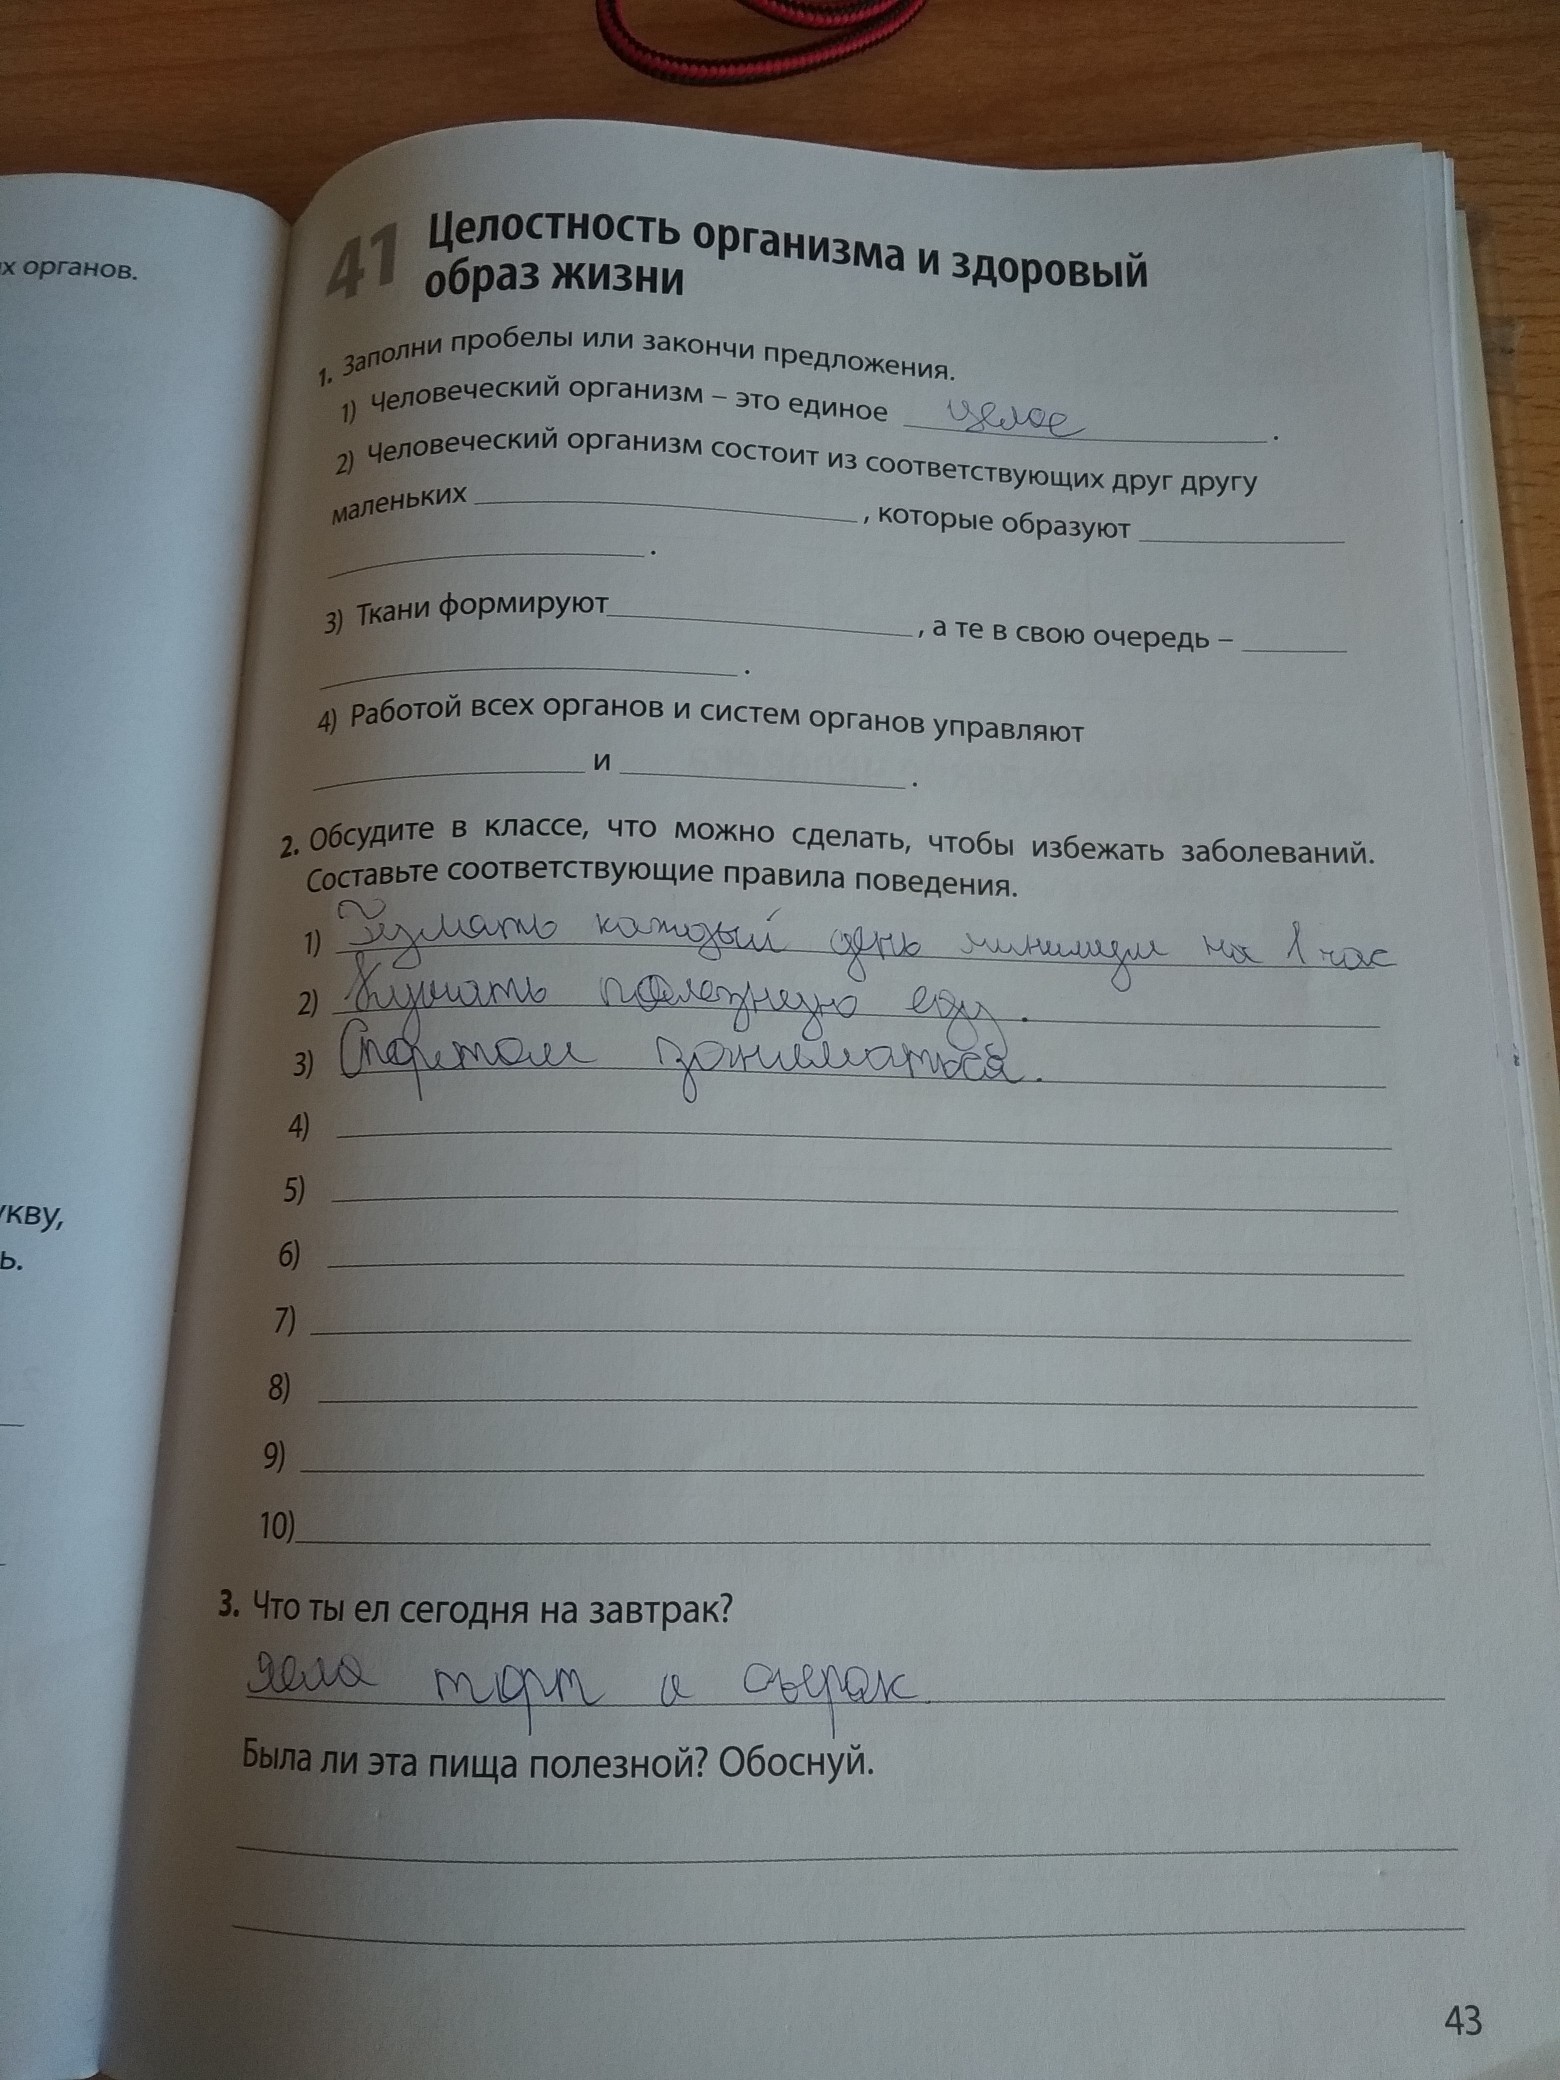 х органов.
укву,
ь.
41 Целостность организма и здоровый
образ жизни
1. Заполни пробелы или закончи предложения.
1) Человеческий организм – это единое целое .
2) Человеческий организм состоит из соответствующих друг другу
маленьких , которые образуют
.
3) Ткани формируют , а те в свою очередь –
.
4) Работой всех органов и систем органов управляют
и .
2. Обсудите в классе, что можно сделать, чтобы избежать заболеваний.
Составьте соответствующие правила поведения.
1) каждый день минимум на 1 час
2) Кушать полезную еду.
3) Спортом заниматься.
4)
5)
6)
7)
8)
9)
10)
3. Что ты ел сегодня на завтрак?
Яела торт и сырок.
Была ли эта пища полезной? Обоснуй.
43